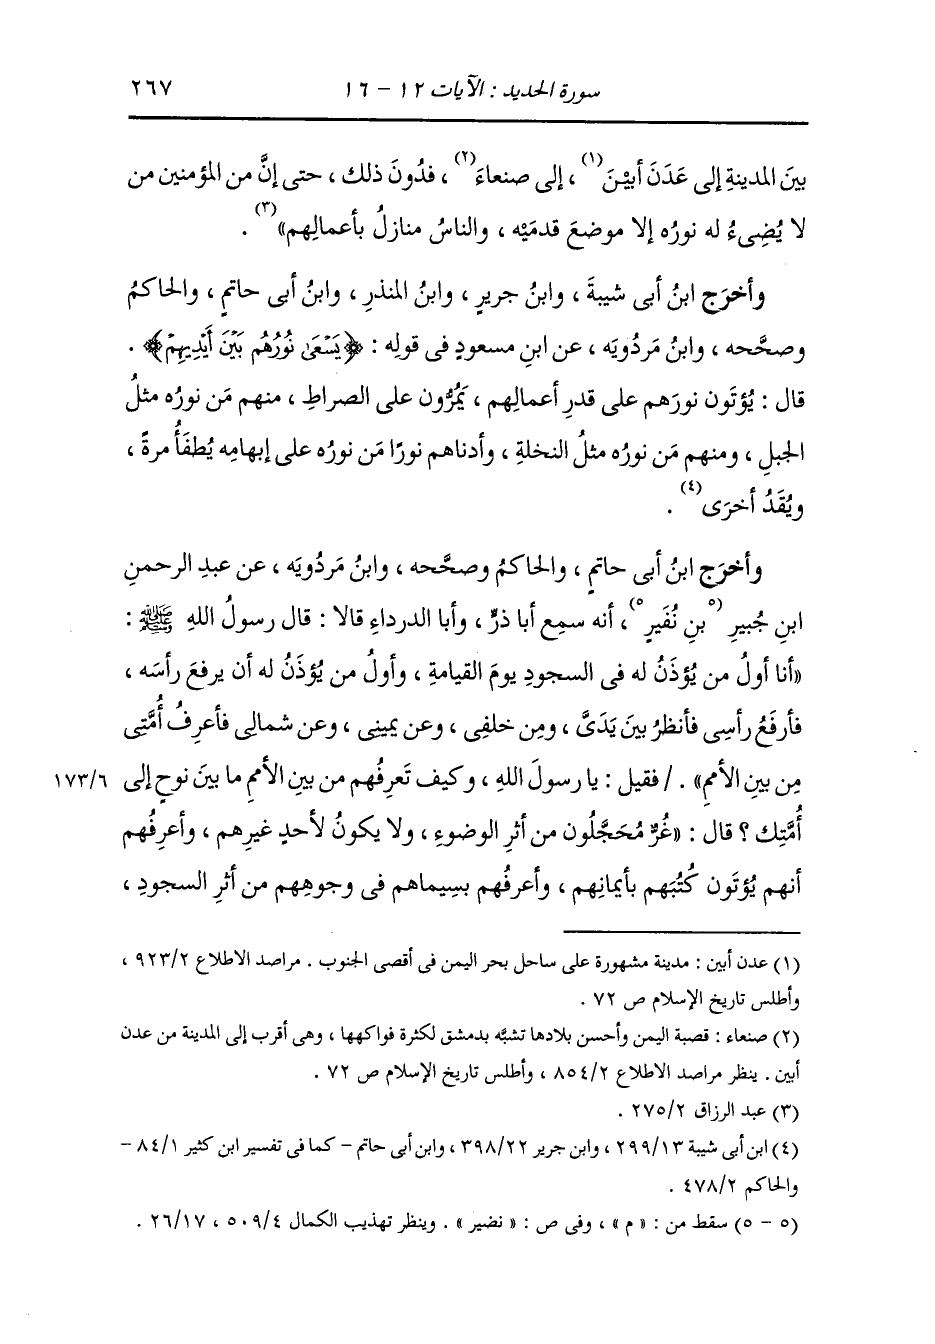 سورة الحديد : الآيات ١٢ - ١٦ ٢٦٧
بينَ المدينةِ إلى عَدَنَ أبيْنَ(١) ، إلى صنعاءَ(٢) ، فدُونَ ذلك ، حتى إنَّ من المؤمنين من
لا يُضِىءُ له نورُه إلا موضعَ قدمَيْه ، والناسُ منازلُ بأعمالِهم»(٣) .
وأخرَج ابنُ أبى شيبةَ ، وابنُ جريرٍ ، وابنُ المنذرِ ، وابنُ أبى حاتمٍ ، والحاكمُ
وصحَّحه ، وابنُ مَردُويَه ، عن ابنِ مسعودٍ فى قولِه : ﴿يَسْعَىٰ نُورُهُم بَيْنَ أَيْدِيهِمْ﴾ .
قال : يُؤتَون نورَهم على قدرِ أعمالِهم ، يَمُرُّون على الصراطِ ، منهم مَن نورُه مثلُ
الجبلِ ، ومنهم مَن نورُه مثلُ النخلةِ ، وأدناهم نورًا مَن نورُه على إبهامِه يُطفَأُ مرةً ،
ويُقَدُ أخرَى(٤) .
وأخرَج ابنُ أبى حاتمٍ ، والحاكمُ وصحَّحه ، وابنُ مَردُويَه ، عن عبدِ الرحمنِ
ابنِ جُبيرِ (٥بنِ نُفَيرٍ٥) ، أنه سمِع أبا ذرٍّ ، وأبا الدرداءِ قالا : قال رسولُ اللهِ ﷺ :
«أنا أولُ من يُؤذَنُ له فى السجودِ يومَ القيامةِ ، وأولُ من يُؤذَنُ له أن يرفعَ رأسَه ،
فأرفَعُ رأسِى فأنظرُ بينَ يَدَىَّ ، ومِن خلفِى ، وعن يمينِى ، وعن شمالِى فأعرِفُ أُمَّتِى
مِن بينِ الأُممِ» . / فقيل : يا رسولَ اللهِ ، وكيف تَعرِفُهم من بينِ الأُممِ ما بينَ نوحٍ إلى ١٧٣/٦
أُمَّتِك ؟ قال : «غُرٌّ مُحَجَّلُون من أثرِ الوضوءِ ، ولا يكونُ لأحدٍ غيرِهم ، وأعرِفُهم
أنهم يُؤتَون كُتُبَهم بأيمانِهم ، وأعرفُهم بسِيماهم فى وجوهِهم من أثرِ السجودِ ،
(١) عدن أبين : مدينة مشهورة على ساحل بحر اليمن فى أقصى الجنوب . مراصد الاطلاع ٩٢٣/٢ ،
وأطلس تاريخ الإسلام ص ٧٢ .
(٢) صنعاء : قصبة اليمن وأحسن بلادها تشبَّه بدمشق لكثرة فواكهها ، وهى أقرب إلى المدينة من عدن
أبين . ينظر مراصد الاطلاع ٨٥٤/٢ ، وأطلس تاريخ الإسلام ص ٧٢ .
(٣) عبد الرزاق ٢٧٥/٢ .
(٤) ابن أبى شيبة ٢٩٩/١٣ ، وابن جرير ٣٩٨/٢٢ ، وابن أبى حاتم - كما فى تفسير ابن كثير ٨٤/١ -
والحاكم ٤٧٨/٢ .
(٥ - ٥) سقط من : « م » ، وفى ص : « نضير » . وينظر تهذيب الكمال ٥٠٩/٤ ، ٢٦/١٧ .